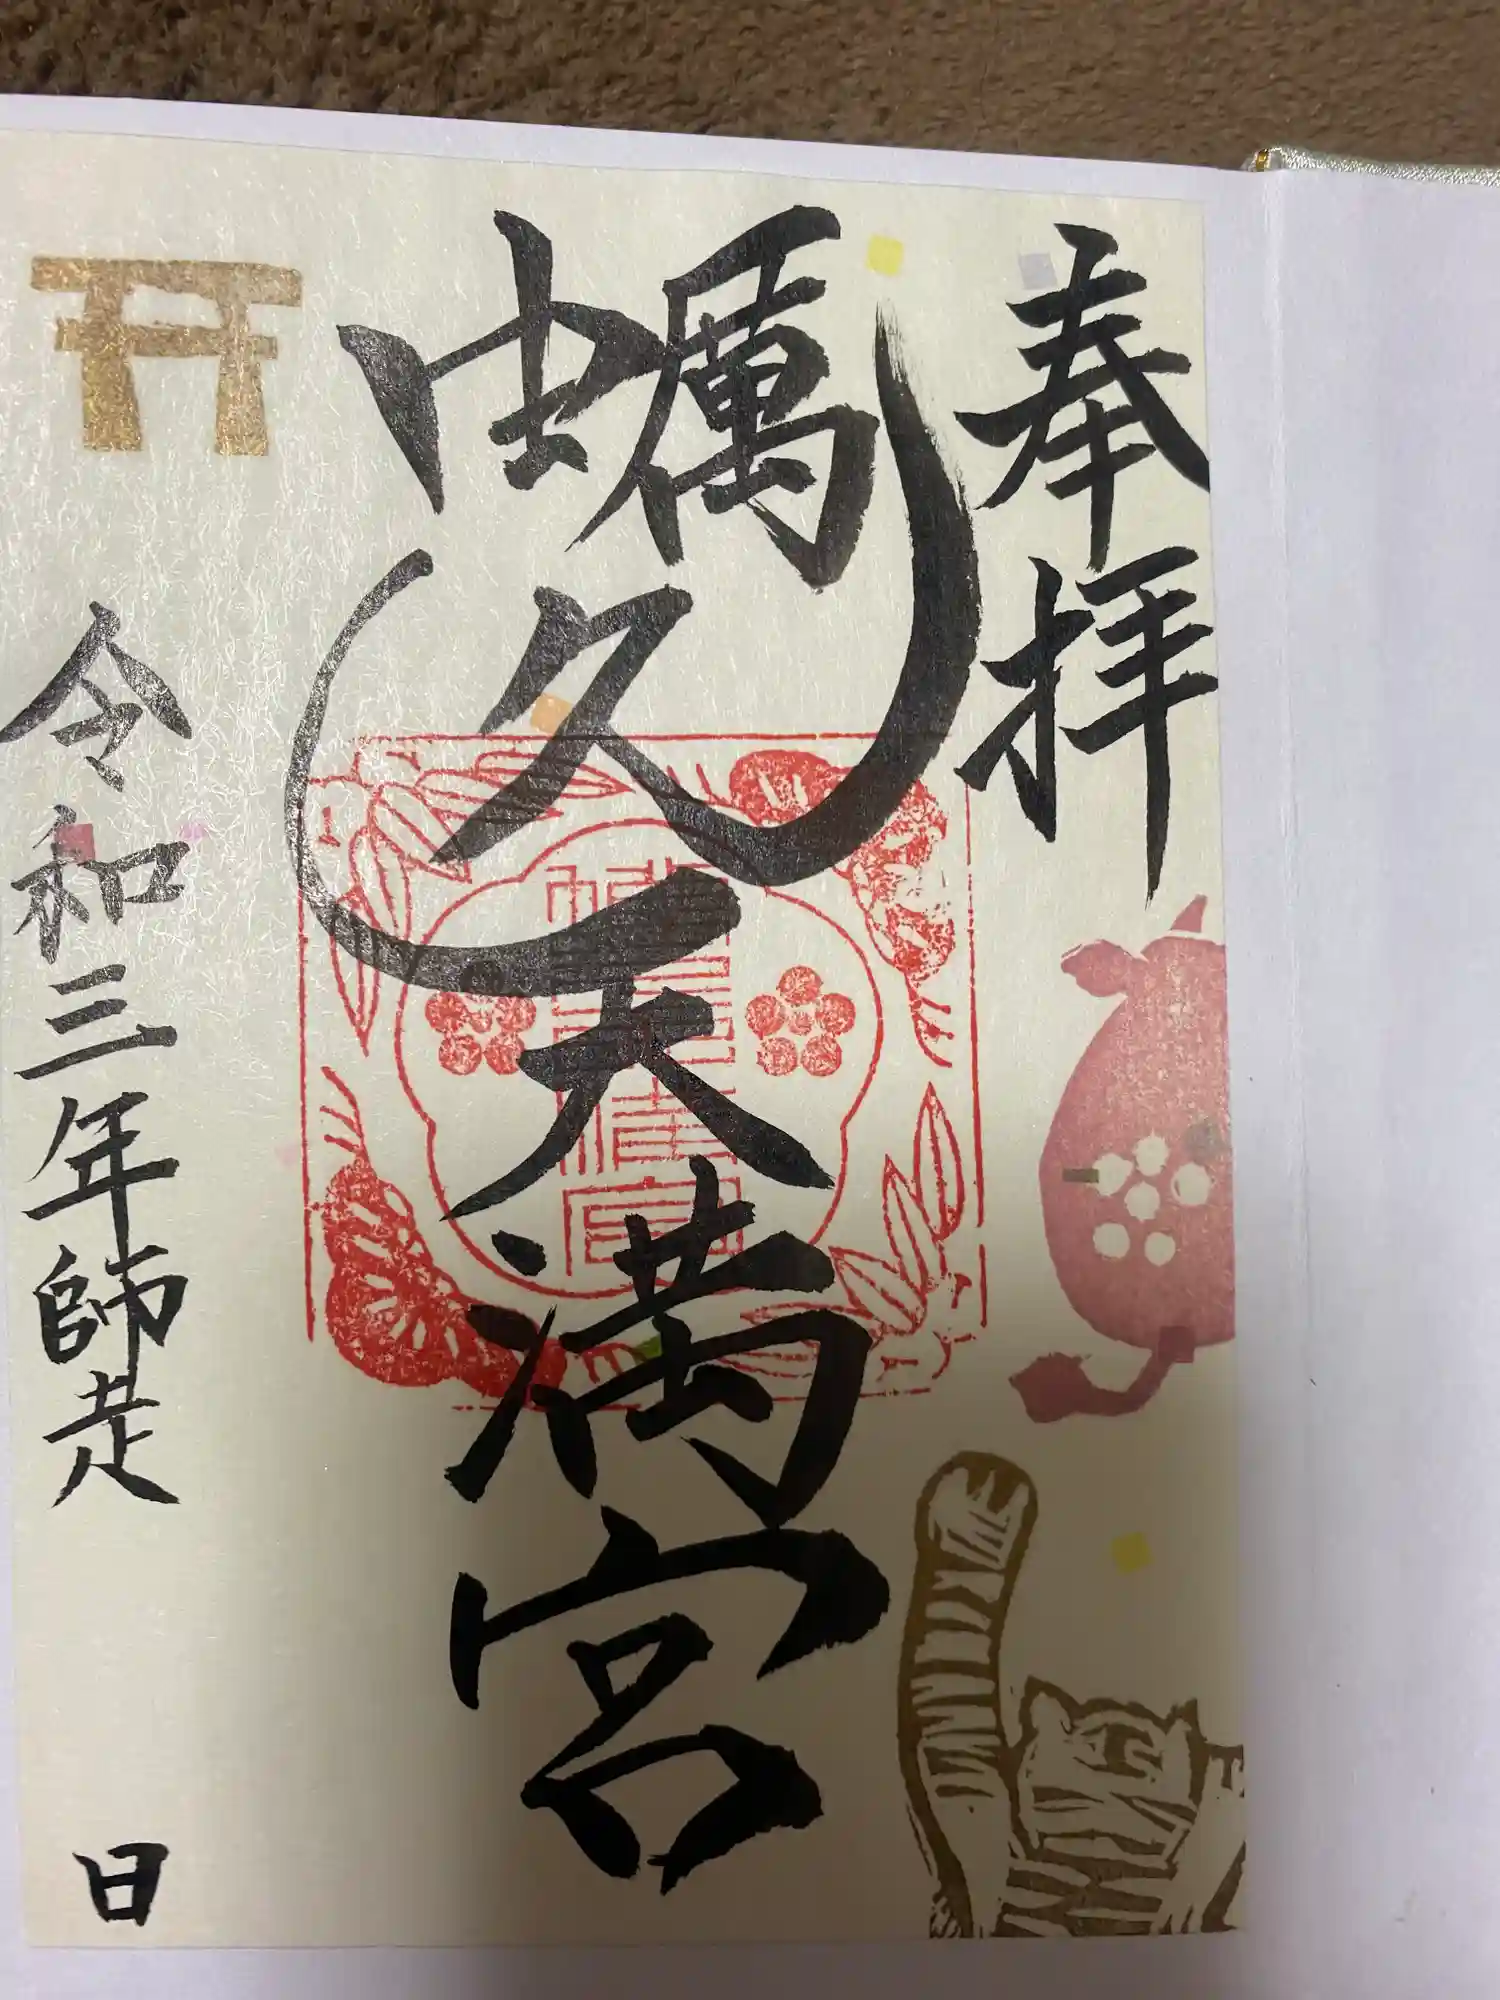 奉拝
蠣久天満宮
令和三年師走
日